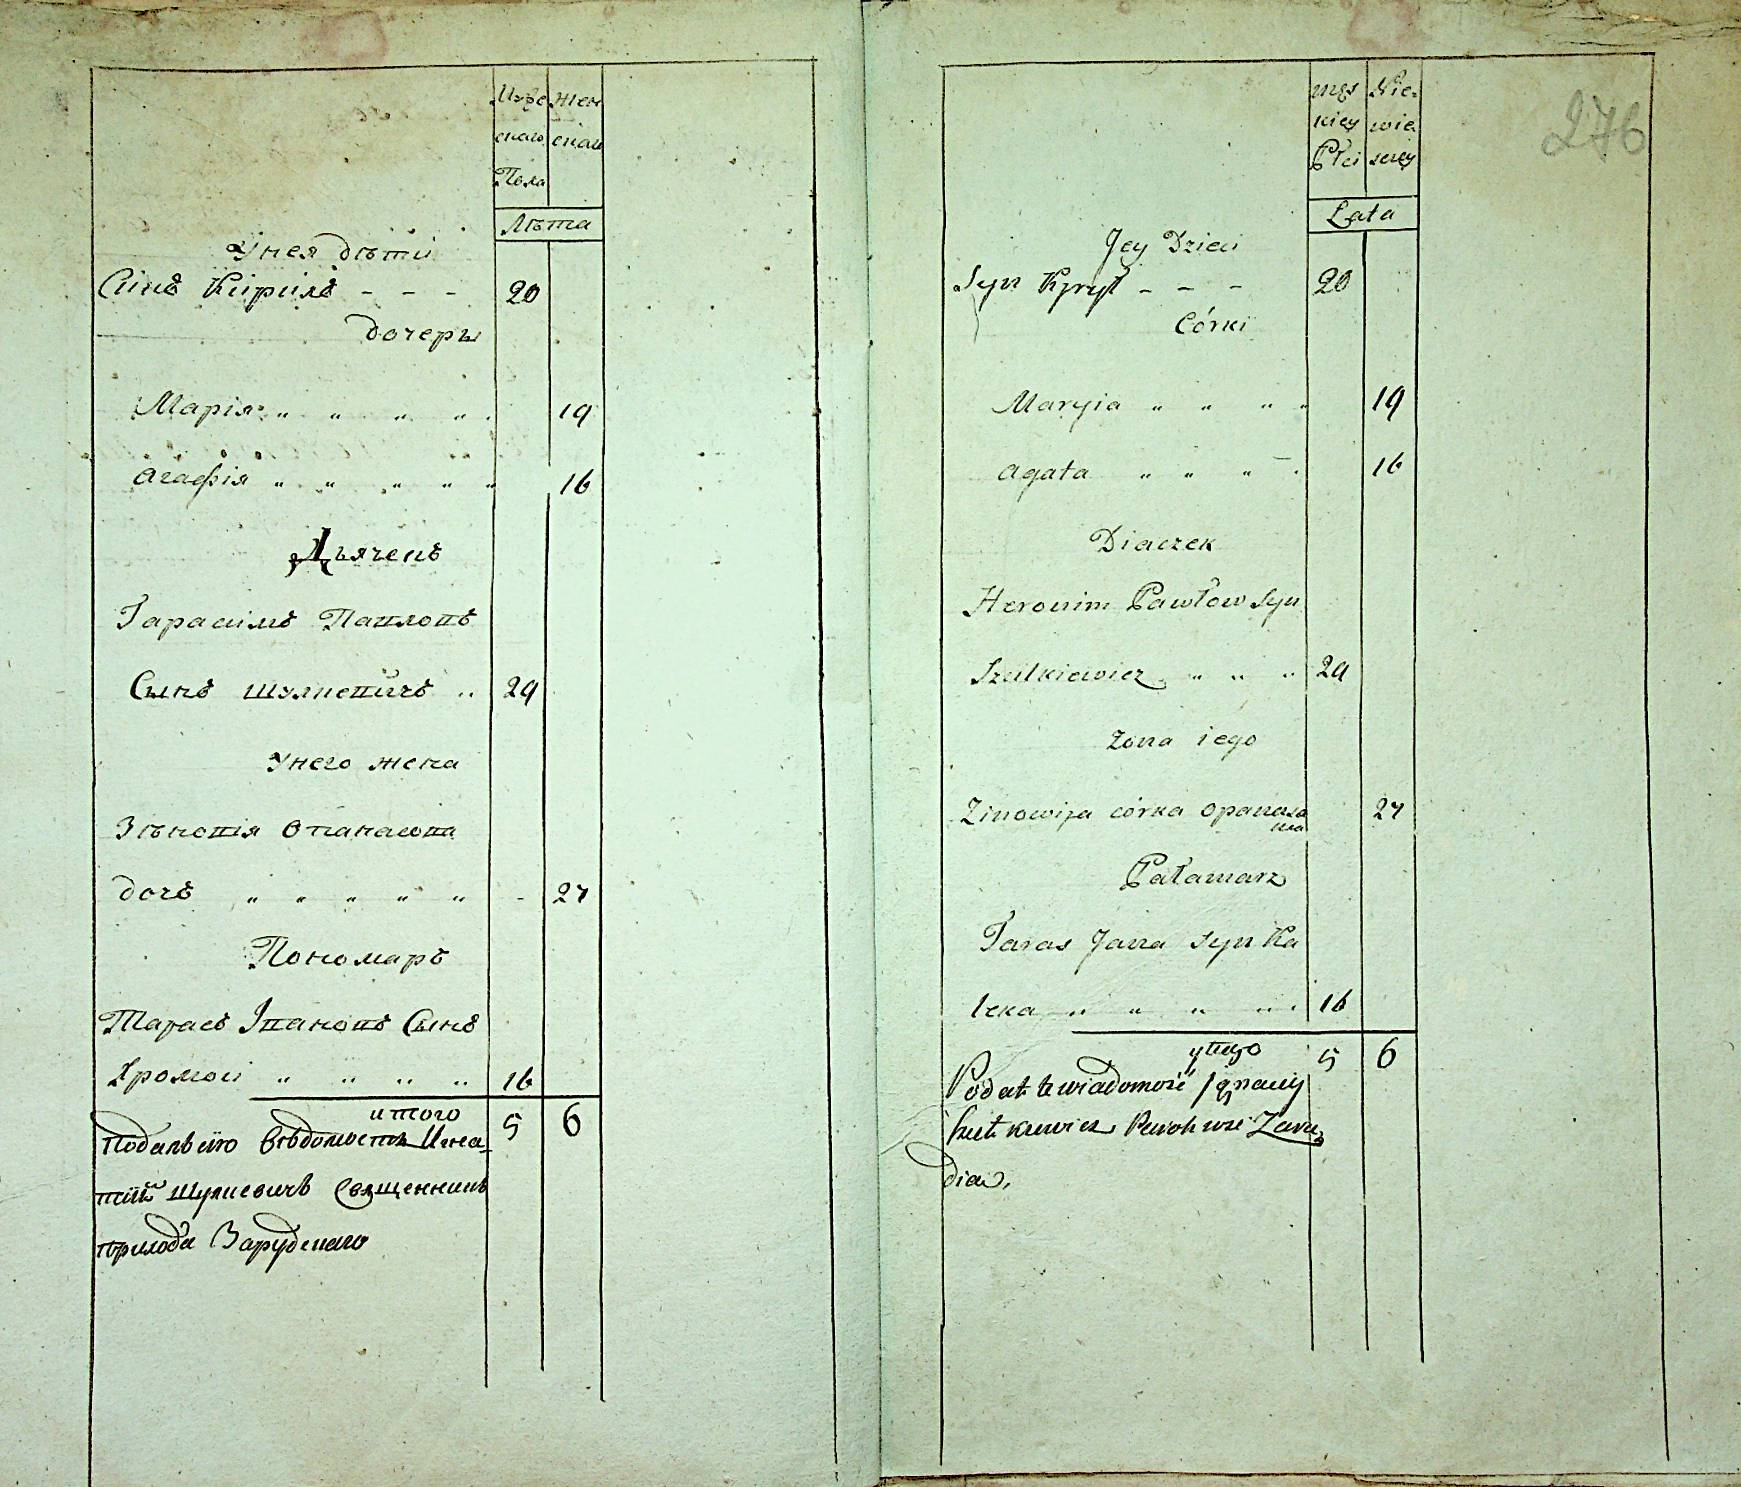 Муже Жен
скаго скаго
Пола
Лѣта
Унея дѣти
Сінъ Кирилъ - - - 20
дочеры
Марія „ „ „ „ 19
Агафія „ „ „ „ „ 16
Дьячекъ
Гарасімъ Павловъ
Сынъ Шулкевичъ „ 29
Унего жена
Зѣновія Опанасова
дочъ „ „ „ „ „ - 27
Пономаръ
Тарасъ Івановъ Сынъ
Хромои „ „ „ „ 16
итого 5 6
Подалъ сию вѣдомость Игна-
тий Шулкевичъ Священникъ
прихода Зарудскаго
276
męs Nie-
kiey wie
Płci sciey
Lata
Jey Dzieci
Syn Kyrył - - - 20
Córki
Maryia „ „ „ „ 19
Agata „ „ „ - . 16
Diaczek
Heronim Pawłow Syn
Szulkiewicz „ „ „ 29
Zona iego
Zinowija córka Opanaso 27
wa
Pałamarz
Taras Jana syn Ku
lczka „ „ „ „ 16
y tego 5 6
Podał te wiadomość Jgnacij
Szulkiewicz Paroh wsi Zaru-
dia.